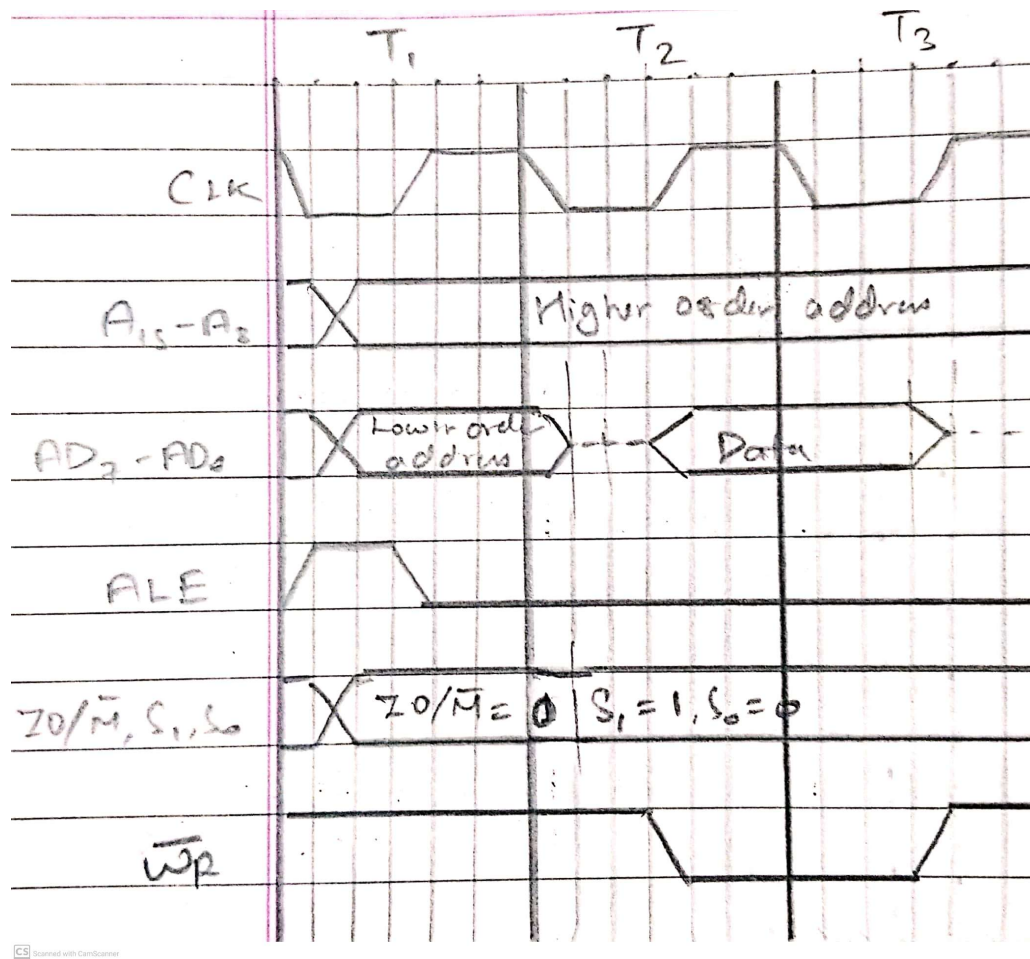 T₁ T₂ T₃
CLK
A₁₅-A₈
Higher order address
AD₇-AD₀
Lower order
address
Data
ALE
IO/M̄, S₁, S₀
IO/M̄ = 0 S₁ = 1, S₀ = 0
W̄R̄
CS Scanned with CamScanner